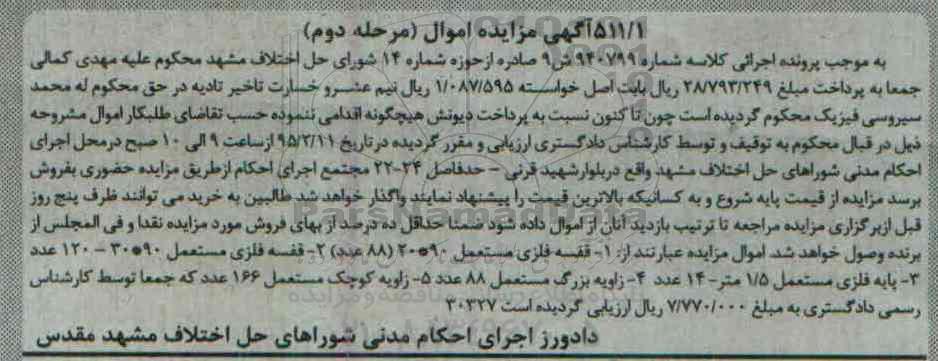 ۵۱۱/۱آگهی مزایده اموال (مرحله دوم)
به موجب پرونده اجرائی کلاسه شماره ۹۴۰۷۹۹ ش۹ صادره ازحوزه شماره ۱۴ شورای حل اختلاف مشهد محکوم علیه مهدی کمالی
جمعا به پرداخت مبلغ ۲۸/۷۹۳/۲۴۹ ریال بابت اصل خواسته ۱/۰۸۷/۵۹۵ ریال نیم عشرو خسارت تاخیر تادیه در حق محکوم له محمد
سیروسی فیزیک محکوم گردیده است چون تا کنون نسبت به پرداخت دیونش هیچگونه اقدامی ننموده حسب تقاضای طلبکار اموال مشروحه
ذیل در قبال محکوم به توقیف و توسط کارشناس دادگستری ارزیابی و مقرر گردیده در تاریخ ۹۵/۲/۱۱ ازساعت ۹ الی ۱۰ صبح درمحل اجرای
احکام مدنی شوراهای حل اختلاف مشهد واقع دربلوارشهید قرنی - حدفاصل ۲۴-۲۲ مجتمع اجرای احکام ازطریق مزایده حضوری بفروش
برسد مزایده از قیمت پایه شروع و به کسانیکه بالاترین قیمت را پیشنهاد نمایند واگذار خواهد شد طالبین به خرید می توانند ظرف پنج روز
قبل ازبرگزاری مزایده مراجعه تا ترتیب بازدید آنان از اموال داده شود ضمنا حداقل ده درصد از بهای فروش مورد مزایده نقدا و فی المجلس از
برنده وصول خواهد شد. اموال مزایده عبارتند از: ۱- قفسه فلزی مستعمل ۹۰*۲۰ (۸۸ عدد) ۲- قفسه فلزی مستعمل ۹۰*۳۰ - ۱۲۰ عدد
۳- پایه فلزی مستعمل ۱/۵ متر-۱۴ عدد ۴- زاویه بزرگ مستعمل ۸۸ عدد ۵- زاویه کوچک مستعمل ۱۶۶ عدد که جمعا توسط کارشناس
رسمی دادگستری به مبلغ ۷/۷۷۰/۰۰۰ ریال ارزیابی گردیده است ۳۰۳۲۷
دادورز اجرای احکام مدنی شوراهای حل اختلاف مشهد مقدس
ParsNamadData